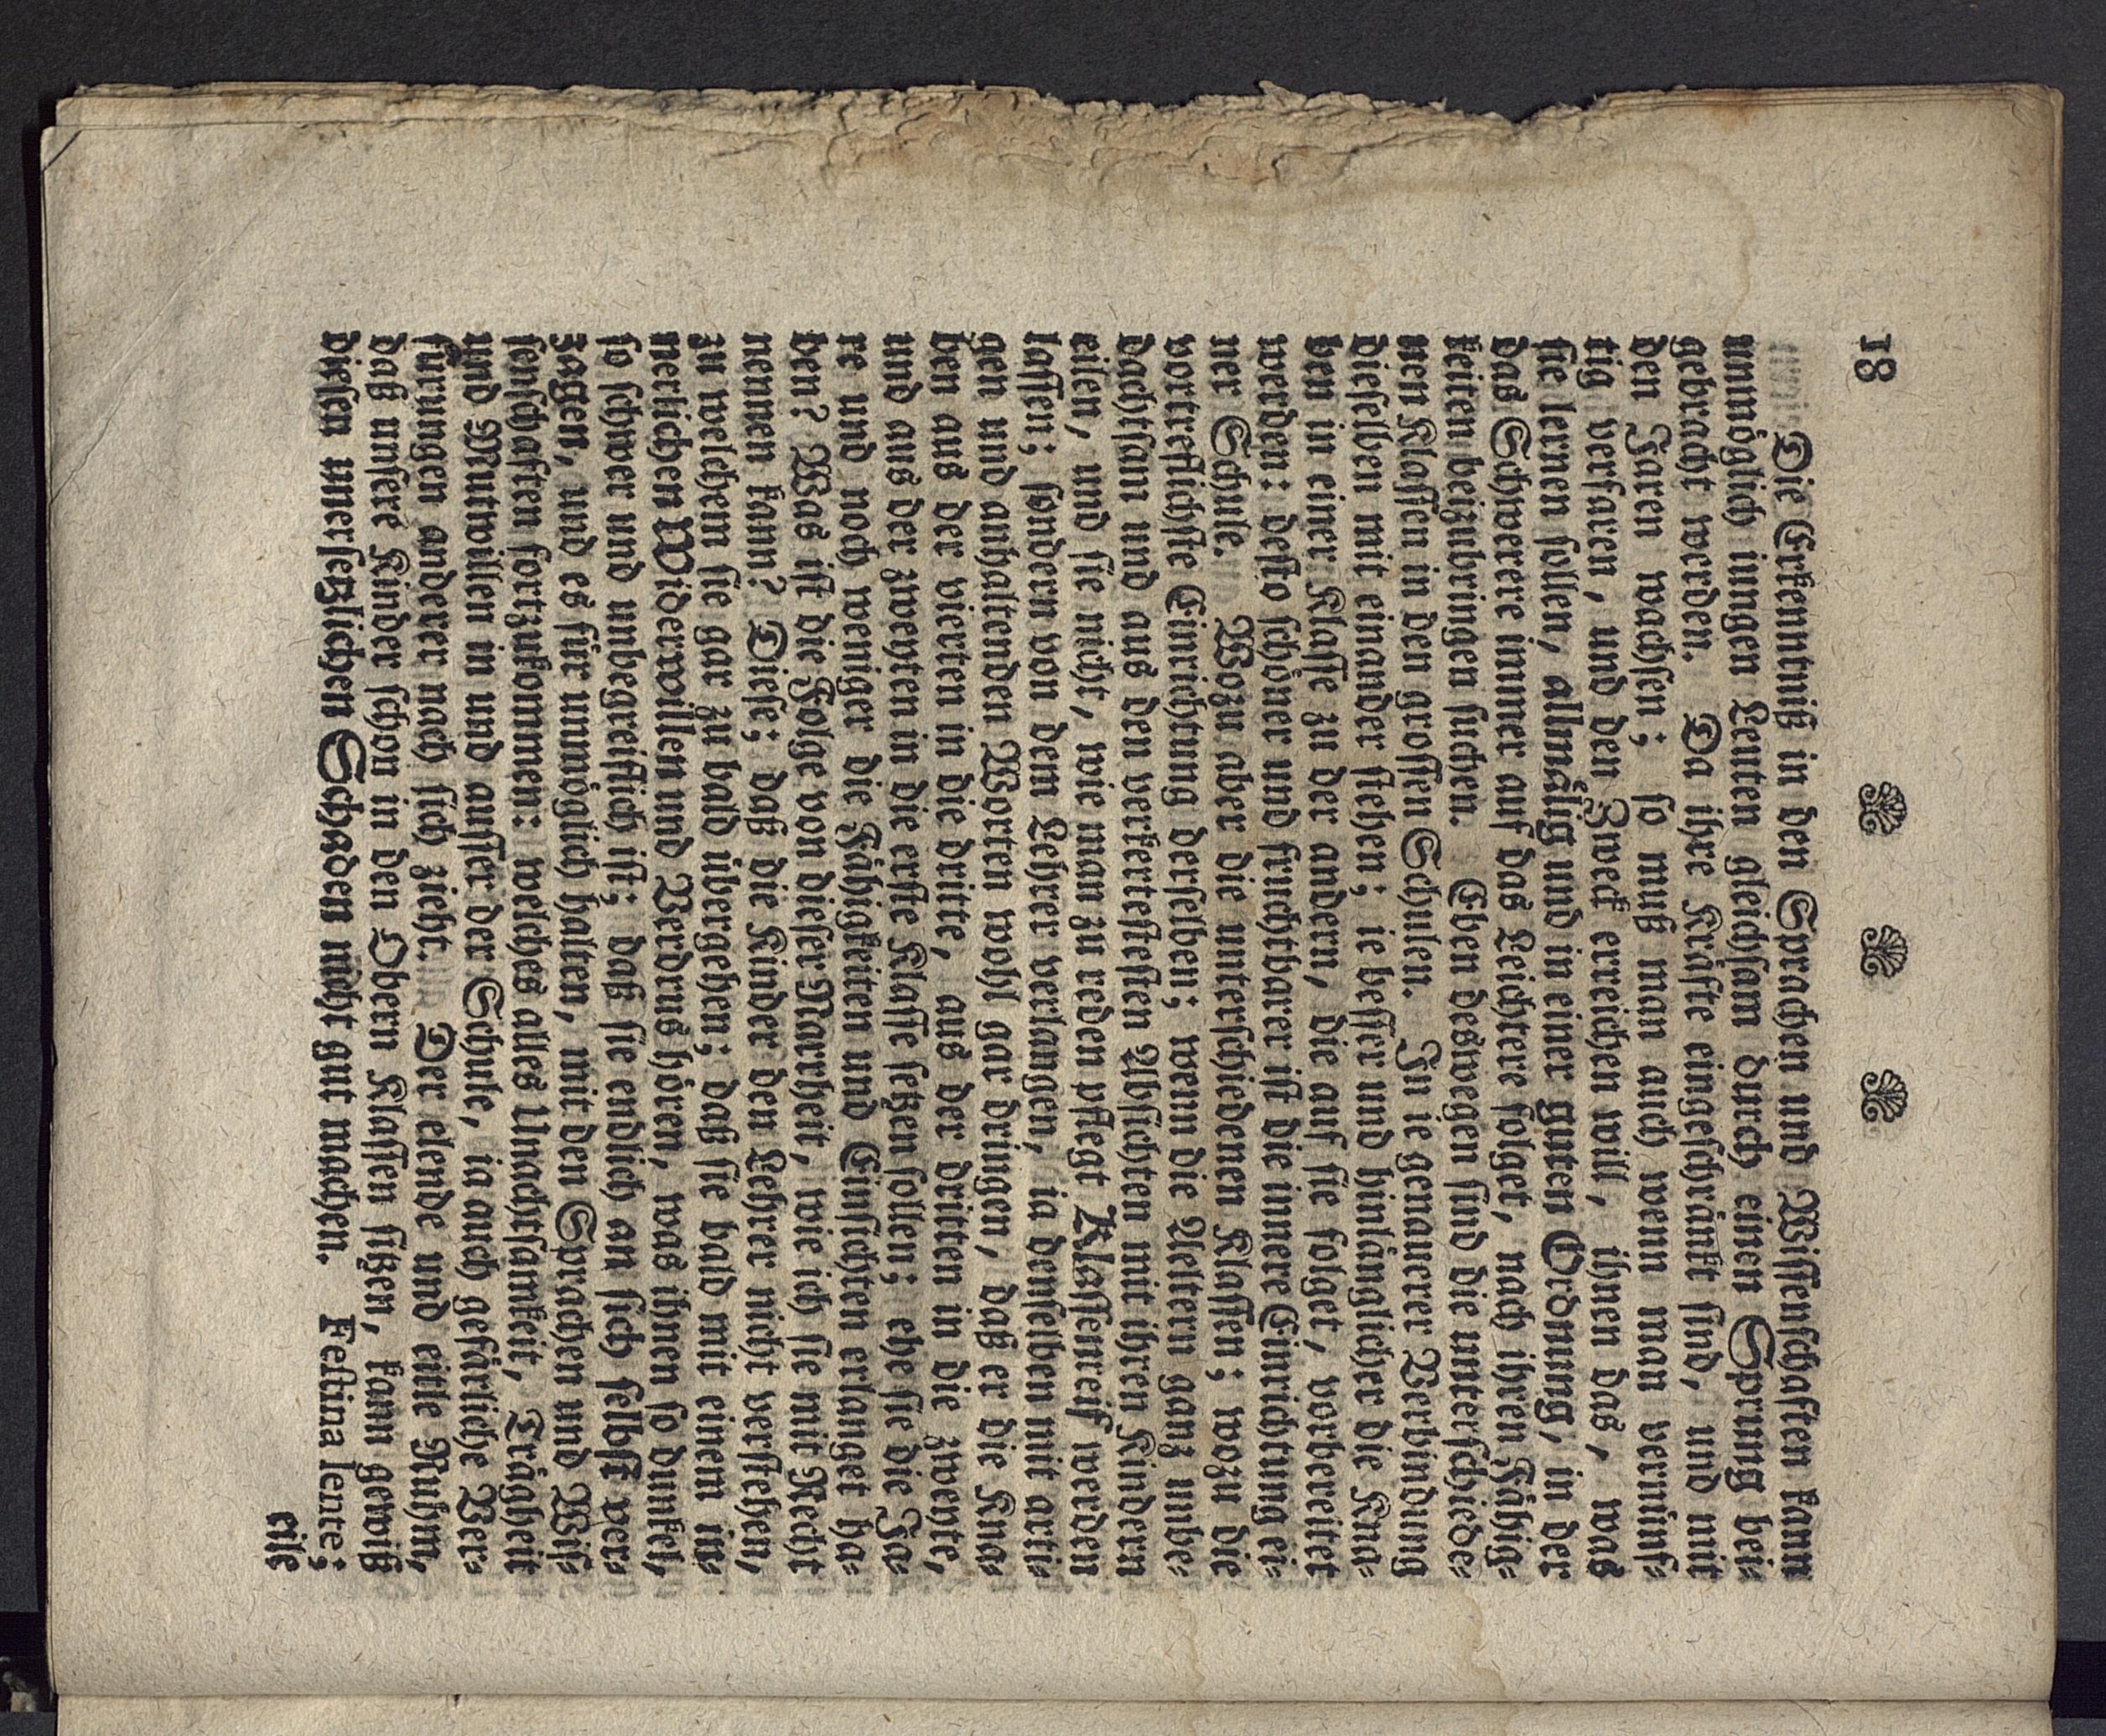 18
Die Erkenntniß in den Sprachen und Wiſſenſchaften kann
unmöglich iungen Leuten gleichſam durch einen Sprung bei⸗
gebracht werden. Da ihre Kräfte eingeſchränkt ſind, und mit
den Jaren wachſen; ſo muß man auch wenn man vernünf⸗
tig verfaren, und den Zweck erreichen will, ihnen das, was
ſie lernen ſollen, allmälig und in einer guten Ordnung, in der
das Schwerere immer auf das Leichtere folget, nach ihren Fähig⸗
keiten beizubringen ſuchen. Eben deswegen ſind die unterſchiede⸗
nen Klaſſen in den groſſen Schulen. In ie genauerer Verbindung
dieſelben mit einander ſtehen; ie beſſer und hinlänglicher die Kna⸗
ben in einer Klaſſe zu der andern, die auf ſie folget, vorbereitet
werden: deſto ſchöner und fruchtbarer iſt die innere Einrichtung ei⸗
ner Schule. Wozu aber die unterſchiedenen Klaſſen; wozu die
vortreflichſte Einrichtung derſelben; wenn die Aeltern ganz unbe⸗
dachtſam und aus den verkerteſten Abſichten mit ihren Kindern
eilen, und ſie nicht, wie man zu reden pflegt Klaſſenreif werden
laſſen; ſondern von dem Lehrer verlangen, ia denſelben mit arti⸗
gen und anhaltenden Worten wohl gar dringen, daß er die Kna⸗
ben aus der vierten in die dritte, aus der dritten in die zweyte,
und aus der zweyten in die erſte Klaſſe ſetzen ſollen; ehe ſie die Ja⸗
re und noch weniger die Fähigkeiten und Einſichten erlanget ha⸗
ben? Was iſt die Folge von dieſer Narheit, wie ich ſie mit Recht
nennen kann? Dieſe; daß die Kinder den Lehrer nicht verſtehen,
zu welchem ſie gar zu bald übergehen; daß ſie bald mit einem in⸗
nerlichen Widerwillen und Verdrus hören, was ihnen ſo dunkel,
ſo ſchwer und unbegreiflich iſt; daß ſie endlich an ſich ſelbſt ver⸗
zagen, und es für unmöglich halten, mit den Sprachen und Wiſ⸗
ſenſchaften fortzukommen: welches alles Unachtſamkeit, Trägheit
und Mutwillen in und auſſer der Schule, ia auch gefärliche Ver⸗
fürungen anderer nach ſich zieht. Der elende und eitle Ruhm,
daß unſere Kinder ſchon in den Obern Klaſſen ſitzen, kann gewiß
dieſen unerſetzlichen Schaden nicht gut machen. Feſtina lente;
eile